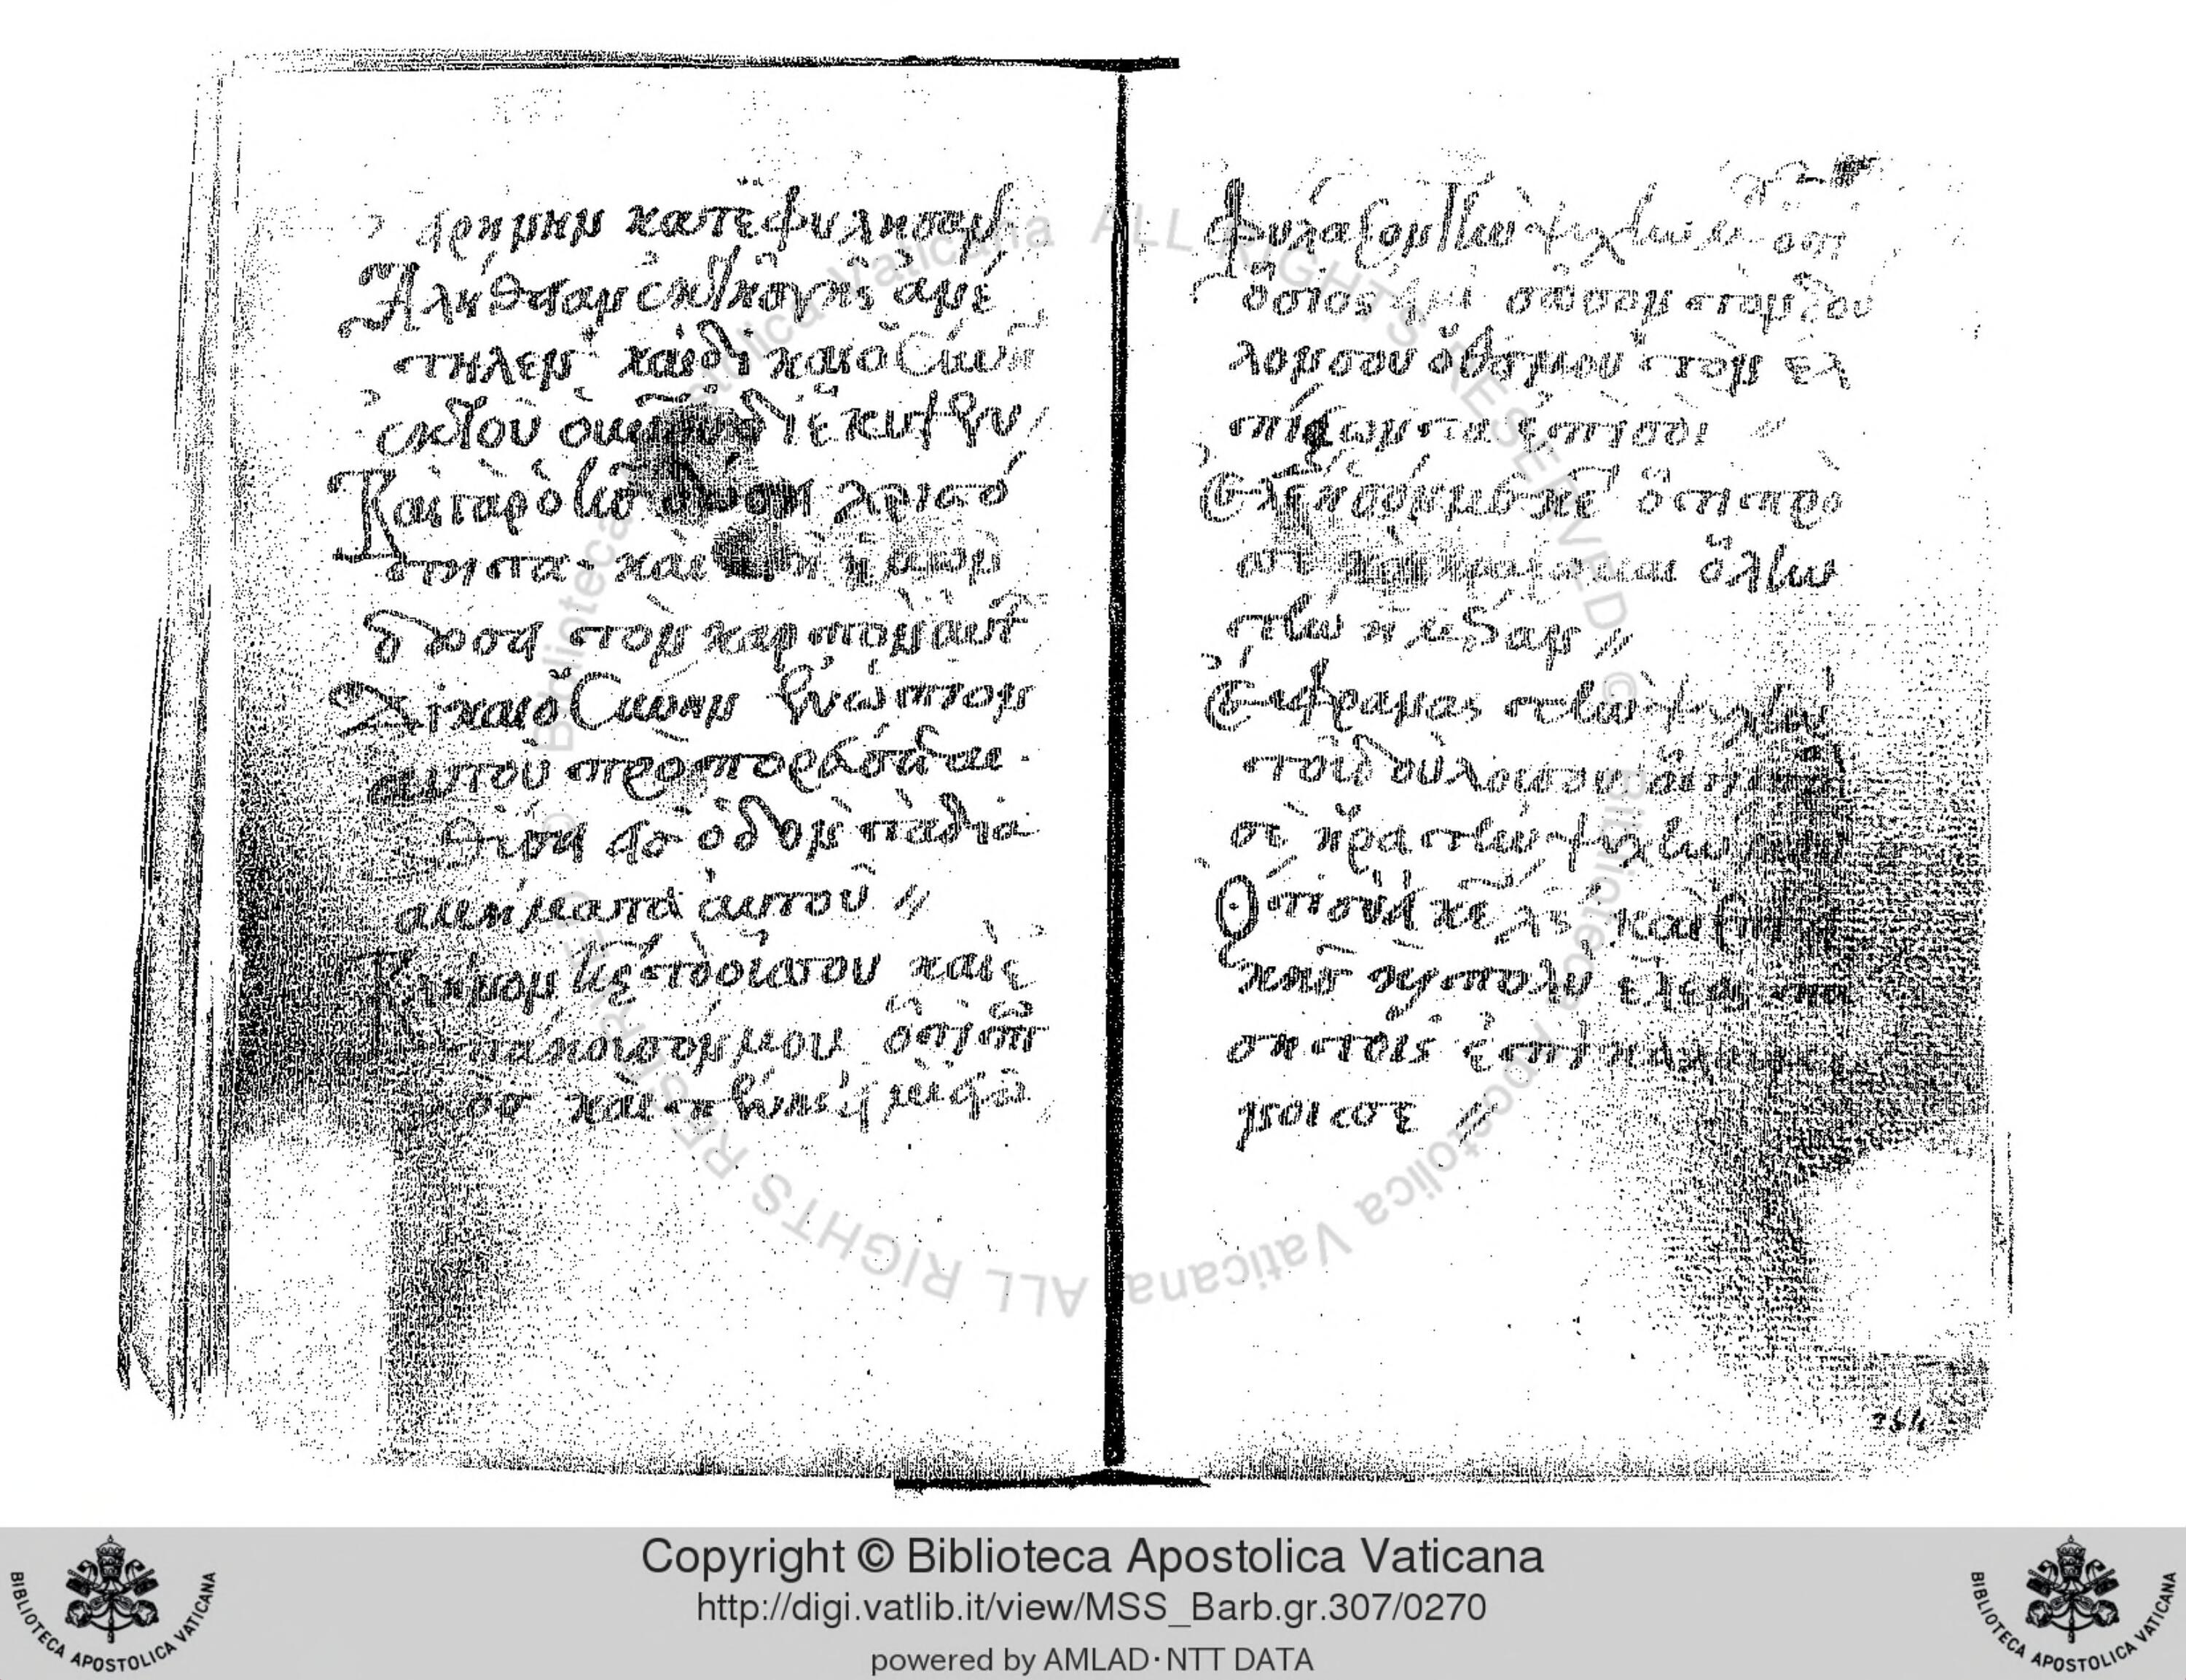 ειρήνην κατεφύλησαν
Ἀλήθεια ἐκ τῆς γῆς ἀνέ
τηλεν καὶ δικαιοσύνη
ἐκ τοῦ οὐ διέκυψεν
Καὶ γὰρ ὁ δώσει χρισό
τητα καὶ ἡ γῆ ἡμῶν
δώσει τὸν καρπὸν αὐτ
Δικαιοσύνην ἐνώπιον
αυτοῦ προπορεύσεται
θήσει εἰσ ὁδὸν τὰ δια
αυτοῦ //
Κλῖνον κε τὸ οὖσ σου καὶ ἐ
πάκουσόν μου ὅτι πτ
χὸσ καὶ πένης εἰμὶ ἐγὼ
φύλαξον τὴν ψυχήν μ ὅτι
ὅσιος εἰμί σῶσον τὸν δοῦ
λον σου ὁ θσ μου τὸν ἐλ
πίζωντα ἐπὶ σὲ //
Ἐλέησόν με κε ὅτι πρὸ
σὲ κεκράξομαι ὅλην
τὴν ἡμέραν //
Εὔφρανας τὴν ψυχὴν
τοῦ δούλου σου ὅτι
σὲ ἦρα τὴν ψυχήν
Ὅτι σὺ κε χς καὶ
κῆσ καὶ πολυέλεος
σι τοῖς ἐπικαλουμέ
νοις σε //
264
Copyright © Biblioteca Apostolica Vaticana
http://digi.vatlib.it/view/MSS_Barb.gr.307/0270
powered by AMLAD·NTT DATA
BIBLIOTECA APOSTOLICA VATICANA
BIBLIOTECA APOSTOLICA VATICANA